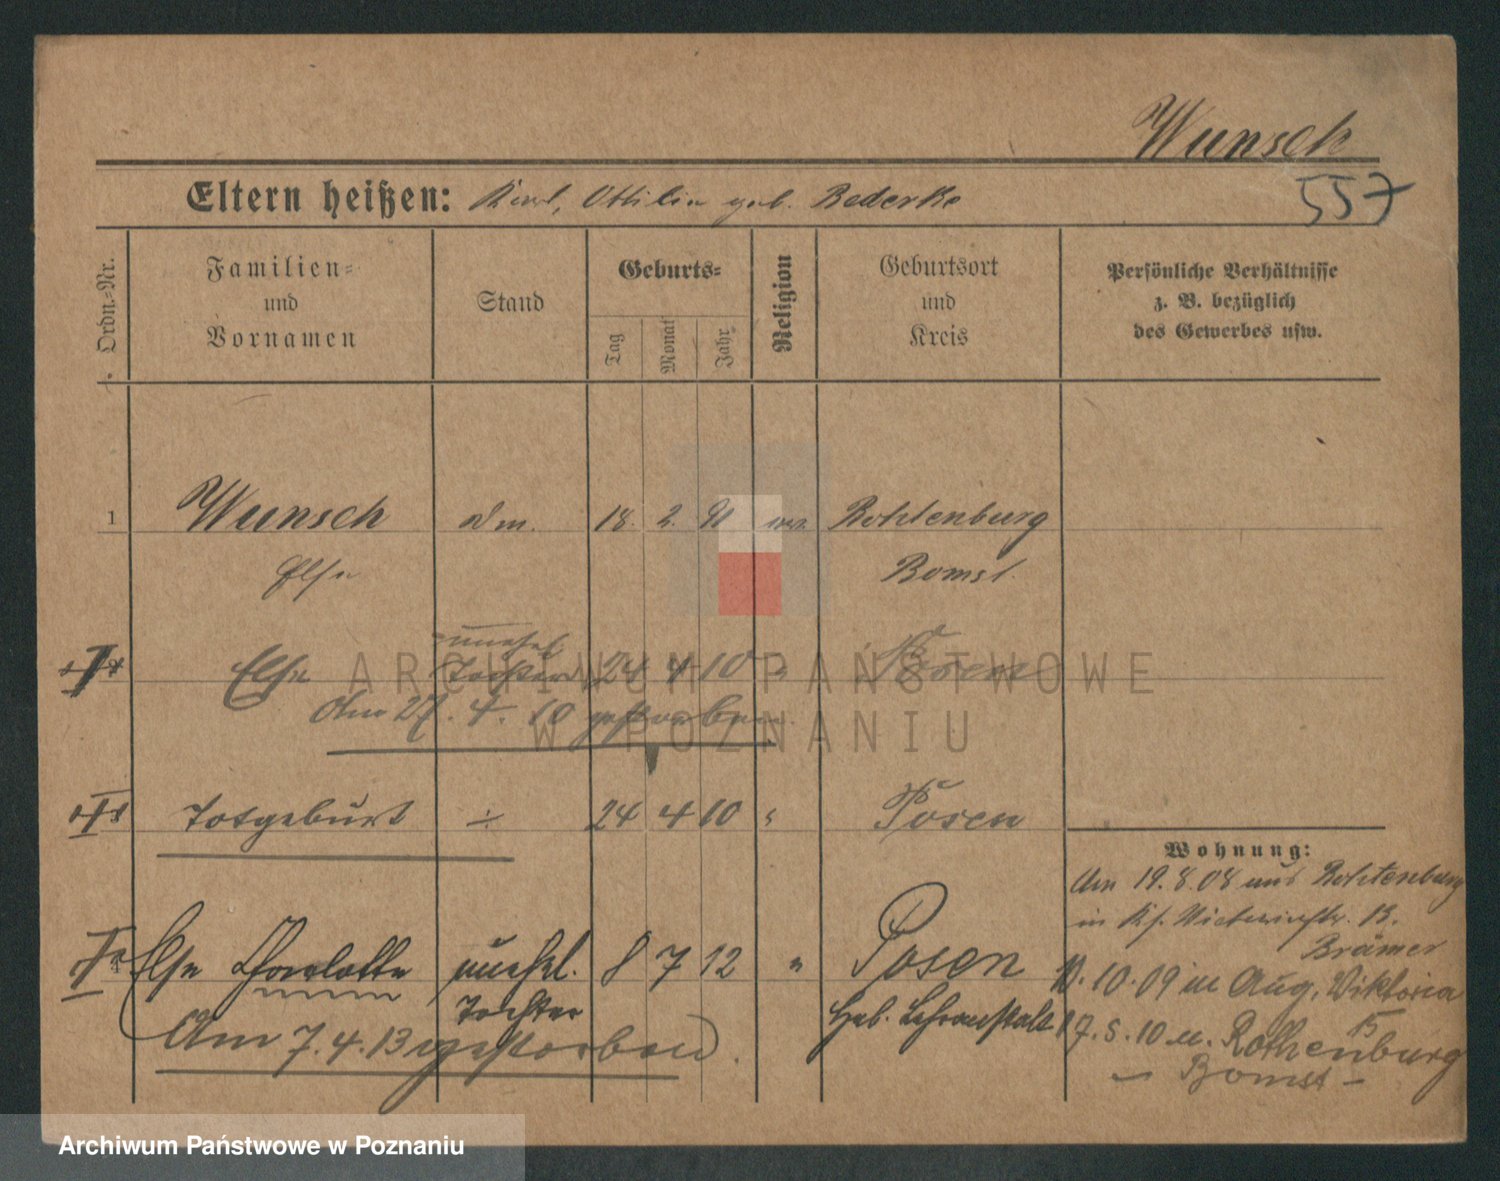 Wunsch
557
Eltern heißen: Karl, Ottilie geb. Bederke
Ordn.-Nr.
Familien-
und
Vornamen
Stand
Geburts-
Tag
Monat
Jahr
Religion
Geburtsort
und
Kreis
Persönliche Verhältnisse
z. B. bezüglich
des Gewerbes usw.
1 Wunsch 18. 2. 91 Rothenburg
Else Bomst.
unehel.
Else Tochter 24 4 10 " Posen
Am 27. 4. 10 gestorben.
ARCHIWUM PAŃSTWOWE
W POZNANIU
Totgeburt ÷ 24 4 10 " Posen
Wohnung:
Am 19.8.08 aus Rothenburg
in Viktoriastr. 13.
Brämer
Else Charlotte unehel. 8 7 12 " Posen
Tochter
Heb. Lehranstalt
10.09 in Aug. Viktoria
15
17.5.10 n. Rothenburg
Am 7.4.13 gestorben.
- Bomst -
Archiwum Państwowe w Poznaniu